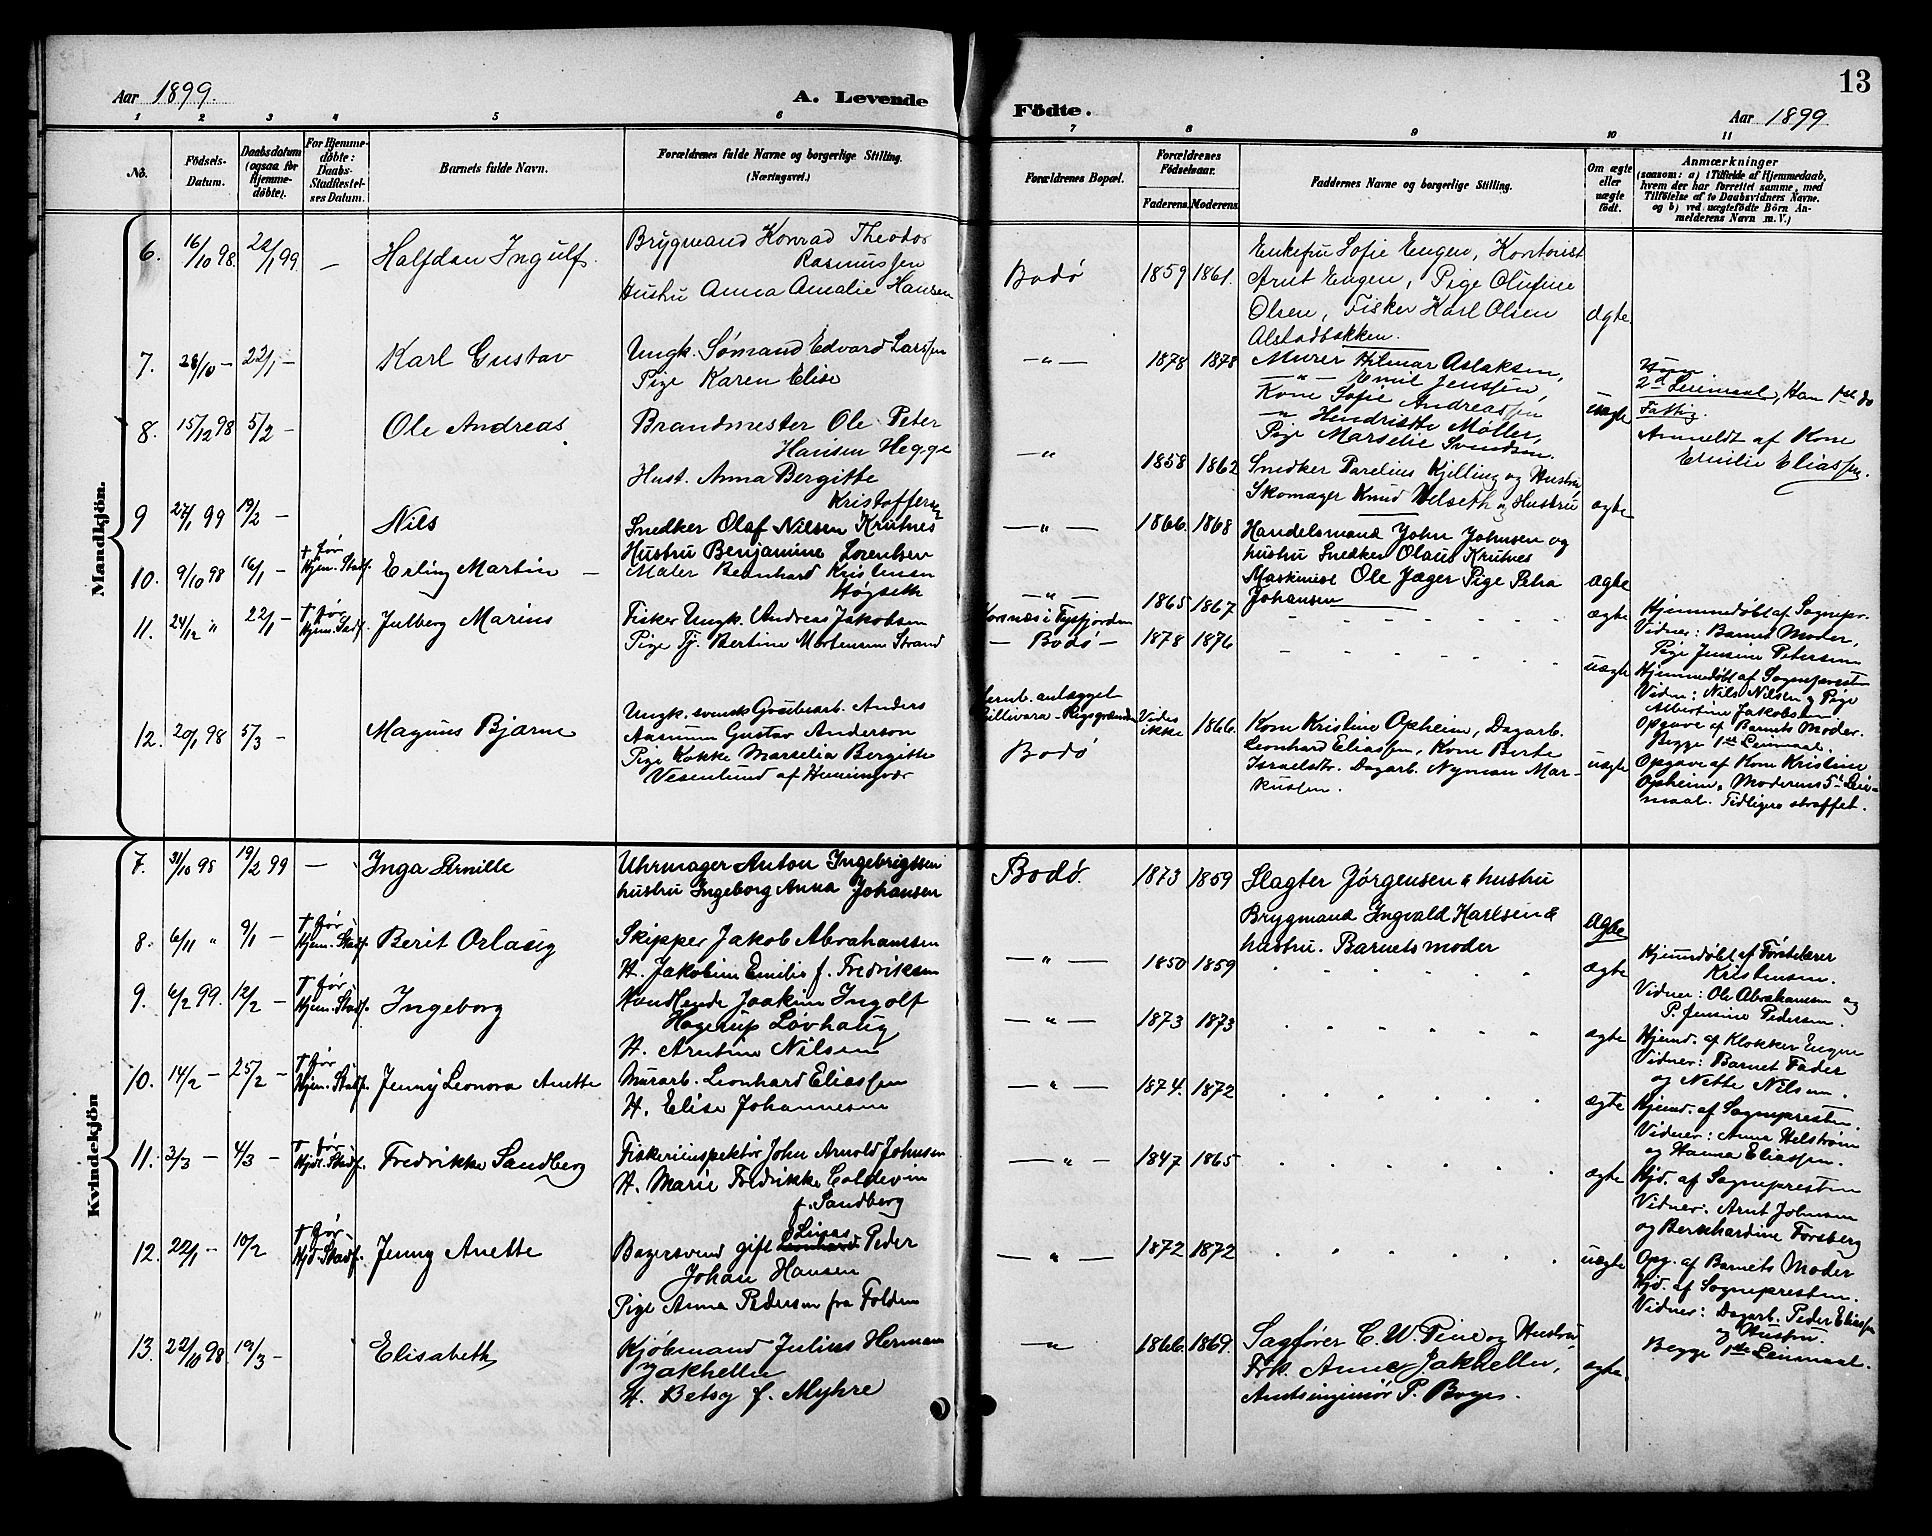 13
Aar 1899.
A. Levende
Födte.
Aar 1899
1 2 3 4 5 6 7 8 9 10 11
No.
Födsels-Datum.
Daabsdatum (ogsaa for Hjemmedöbte).
For Hjemmedöbte: Daabs-Stadfæstelses Datum.
Barnets fulde Navn.
Forældrenes fulde Navne og borgerlige Stilling.
(Næringsvei.)
Forældrenes Bopæl.
Forældrenes Födselsaar.
Faderens. Moderens.
Faddernes Navne og borgerlige Stilling.
Om ægte eller uægte födt.
Anmærkninger
(saasom: a) i Tilfælde af Hjemmedaab,
hvem der har forrettet samme, med
Tilföielse af to Daabsvidners Navne.
og b) ved uægtefödte Börn Anmelderens Navn m. V.)
Mandkjön.
6. 16/10 98. 22/1 99. — Halfdan Ingulf
Brygmand Konrad Theodor
Rasmussen
Hustru Anna Amalie Hansen
Bodø 1859 1861.
Enkefru Sofie Engen, Kontorist
Arnt Engen, Pige Olufine
Olsen, Fisker Karl Olsen
Alstadbakken.
ægte.
7. 28/10 — 22/1 — Karl Gustav
Ungk. Sømand Edvard Larssen
Pige Karen Elise
— " — 1878 1878
Murer Hilmar Aslaksen,
— " — Emil Jenssen,
Kone Sofie Andreassen
" Hendrikke Møller,
Pige Marselie Svendsen.
uægte
2d Leiermaal, Han 1ste do
Fattig.
Anmeldt af Kone
Emilie Eliassen.
8. 15/12 98 5/2 — Ole Andreas
Brandmester Ole Peter
Hansen Hegge
Hust. Anna Bergitte
Kristoffersen
— " — 1858 1862
Snedker Parelius Kjelling og Hustru
Skomager Knud Helseth og Hustru
ægte
9 24/1 99 19/2 — Nils
Snedker Olaf Nilsen Krutnes
Hustru Benjamine Lorentsen
— " — 1866. 1868
Handelsmand John Johnsen og
hustru Snedker Olaus Krutnes
Maskinist Ole Jæger Pige Petra
Johansen
ægte
10. 9/10 98 16/1 — † før Hjem. Stadf. Erling Martin —
Maler Bernhard Kristensen
Høgseth
— " — 1865 1867
ægte
Hjemmedøbt af Sognepr.
Vidner: Barnets Moder,
Pige Jensine Petersen
11. 24/12 " 22/1 — † før Hjem. Stadf. Julberg Marius
Fisker Ungk. Andreas Jakobsen
Pige Tj. Bertine Mortensen Strand
Korsnæs i Tysfjorden
— Bodø — 1878 1876
uægte
Hjemmedøbt af Sognepresten
Vidner: Nils Nilsen og Pige
Albertine Jakobsen
Opgave af Barnets Moder.
Begge 1ste Leiermaal.
12. 20/1 98 5/3 — Magnus Bjarne
Ungk. svensk Grubearb. Anders
Gustav Anderson
Pige Kokke Marselia Bergitte
Vesenlund af Henningsvær
Jernb. anlægget
Gellivara—Rigsgrænsen
Bodø
Vides ikke 1866.
Kone Kristine Opheim, Dagarb.
Leonhard Eliassen, Kone Berte
Israelsdtr. Dagarb. Nyman Mar-
kussen.
uægte
Opgave af Kone Kristine
Opheim, Moderens 5te Leier-
maal. Tidligere straffet.
Kvindekjön
"
7. 31/10 98 19/2 99 — Inga Pernille
Uhrmager Anton Ingebrigtsen
hustru Ingeborg Anna Johansen
Bodø. 1873 1859
Slagter Jørgensen & hustru
Brygmand Ingvald Karlsen &
hustru. Barnets moder
ægte
8. 6/11 " 9/1 — † før Hjem. Stadf. Berit Orlaug
Skipper Jakob Abrahamssen
H. Jakobine Emilie f. Fredriksen
— " — 1850 1859
ægte
Hjemmdøbt af Førstelærer
Kristensen.
Vidner: Ole Abrahamsen og
P. Jensine Pedersen.
9. 6/2 99. 12/2 — † før Hjem. Stadf. Ingeborg
Handlende Joakim Ingolf
Hagerup Løvhaug
H. Arntine Nilsen
— " — 1873 1873
ægte
Hjemd. af Klokker Engen
Vidner: Barnet Fader
og Nette Nilsen.
10. 14/2 — 25/2 — † før Hjem. Stadf. Jenny Leonora Anette
Murarb. Leonhard Eliassen
H. Elise Johannesen
— " — 1874. 1872
ægte
Hjemd. af Sognepresten.
Vidner: Anna Helstrøm
og Hanna Eliassen.
11. 3/3 — 4/3 — † før Hjd. Stadf. Fredrikke Sandberg
Fiskeriinspektør John Arnold Johnsen
H. Marie Fredrikke Coldevin
f. Sandberg
— " — 1847 1865
ægte
Hjd. af Sognepresten
Vidner. Arnt Johnsen
og Bernhardine Forsberg
12. 22/1 — 10/2 † før Hjd. Stadf. Jenny Anette
Bagersvend gift Peder
Johan Hansen
Pige Anna Pedersen fra Folden
— " — 1872 1872
uægte
Opg. af Barnets Moder
Hjd. af Sognepresten.
Vidner: Dagarb. Peder Eliassen
og Hustru.
Begge 1ste Leiermaal.
13. 22/10 98. 19/3 — Elisabeth
Kjøbmand Julius Herman
Jakhelln
H. Betsy f. Myhre
— " — 1866. 1869.
Sagfører C. W. Pine og Hustru,
Frk. Anna Jakhelln,
Amtsingeniør P. Boye.
ægte.